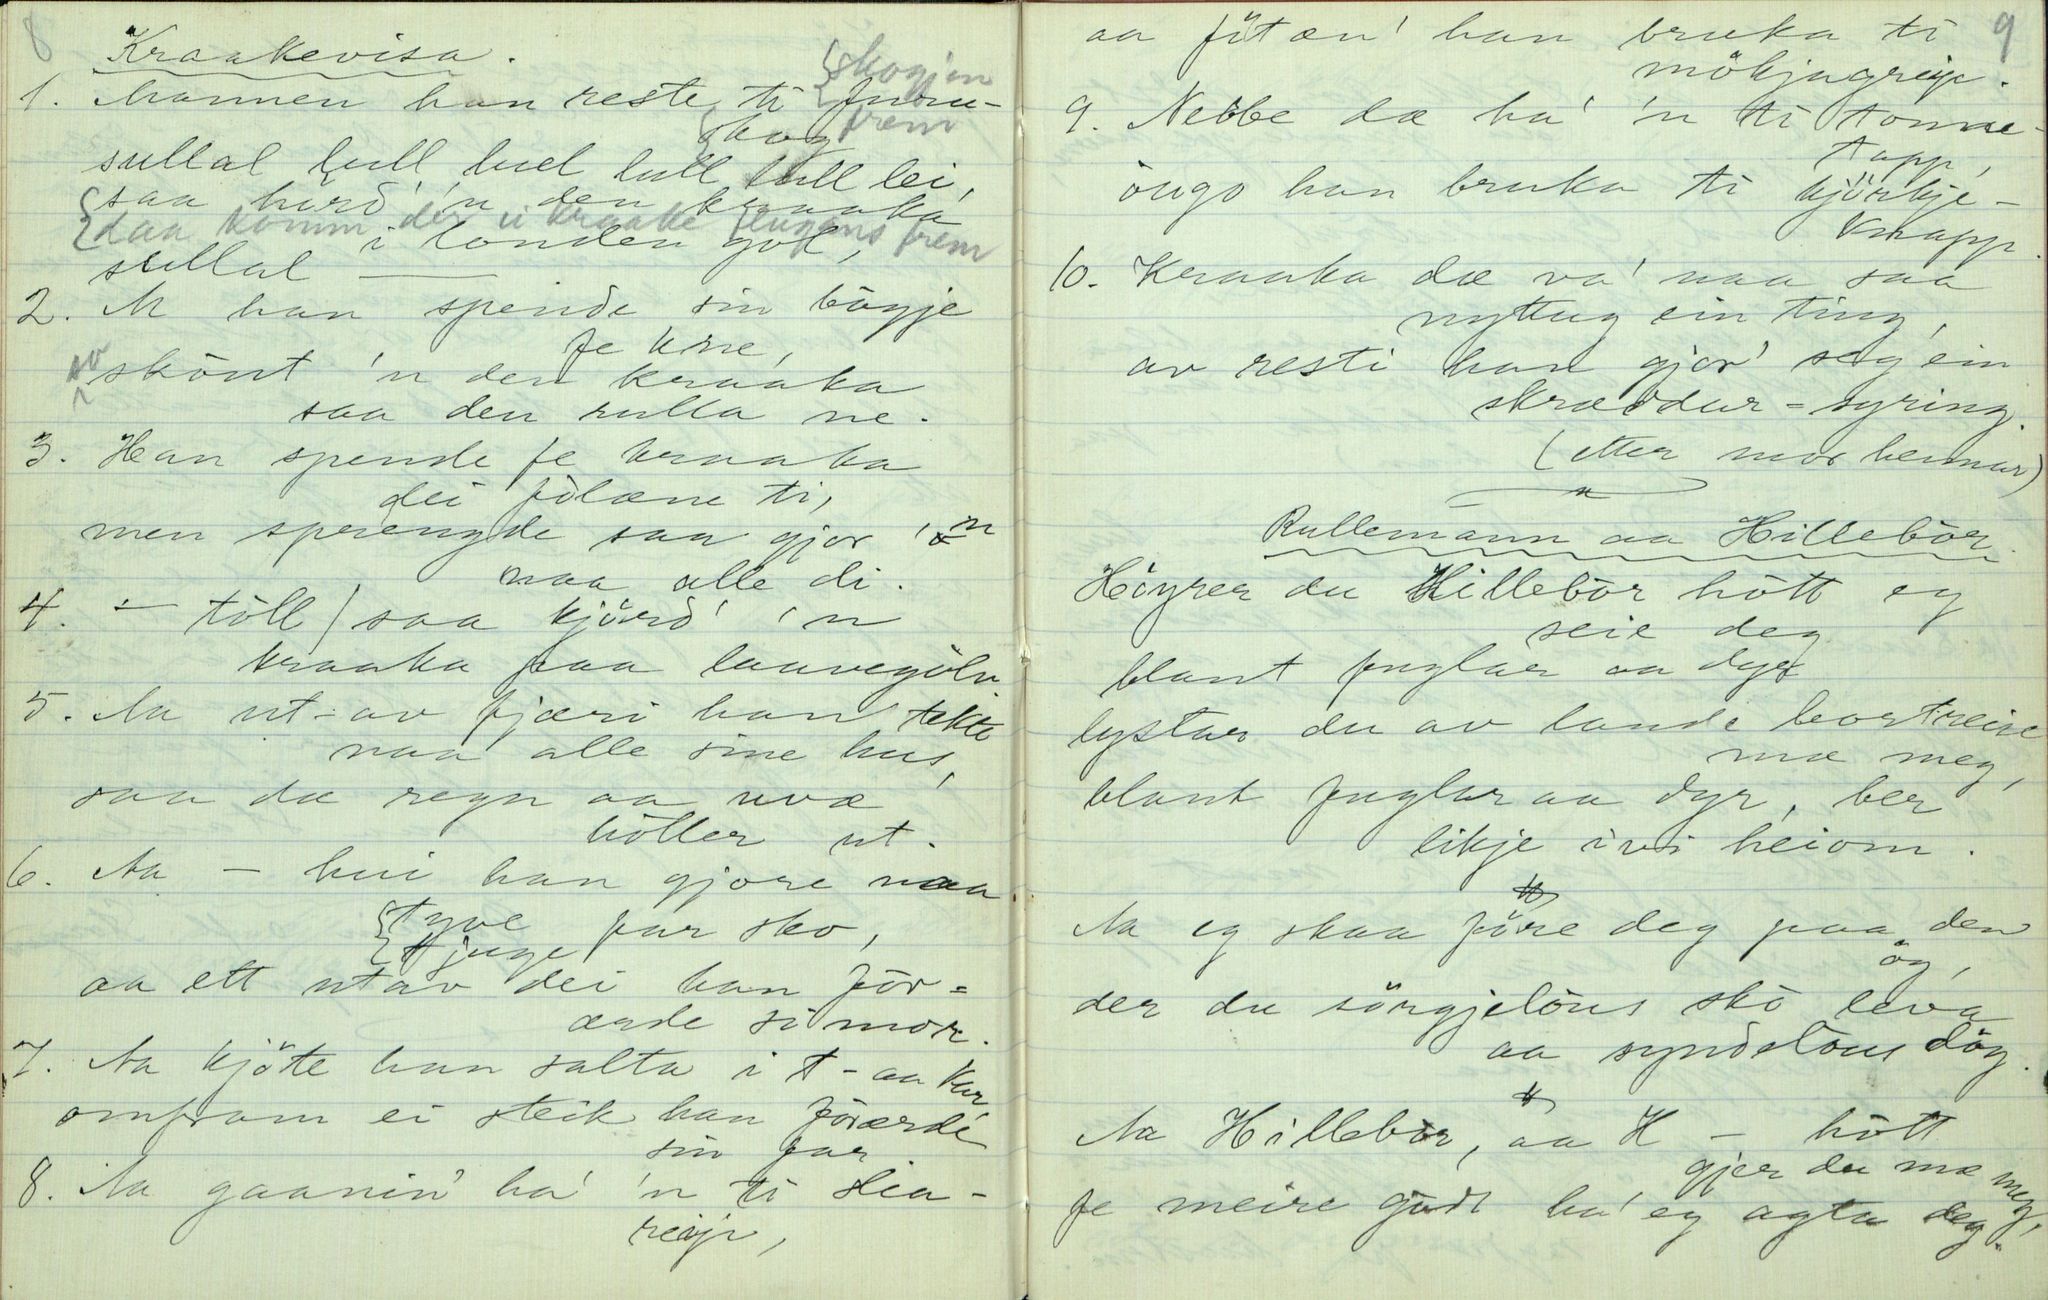 8
Kraakevisa.
{skogjen
1. Mannen han reste ti furu-
skog
frem
sullal lull lull lull lull lei,
saa hürd' 'n den kraaka
{daa komm der ei kraake flugans frem
i londen gol,
sullal —
2. Aa han spende sin bögje
fe kne,
skönt 'n den kraaka
saa den rulla ne.
3. Han spende fe kraaka
dei fölæne ti,
men sprengde saa gjor 'n
naa alle di.
4. – töll / saa kjörd' 'n
kraaka paa laavegölv.
5. Aa ut-av fjæri han tekte
naa alle sine hus,
saa dæ regn aa uvæ'
höller ut.
6. Aa – hui han gjore naa
{tyve par sko,
{tjuge
aa ett utav dei han for-
ærde si mor.
7. Aa kjöte han salta i t- aa kar,
omfram ei steik han forærde
sin far.
8. Aa gaanin' ha' 'n ti slea-
reip,
9
aa föt æn' han bruka ti
mökjagreip.
9. Nebbe dæ ha' 'n ti tonne-
tapp,
öugo han bruka ti kjörkje-
knapp.
10. Kraaka dæ va' naa saa
nyttug ein ting,
av resti han gjor' seg ein
skræddar-syring.
(etter mor hennar)
Rullemann aa Hillebör.
Höyrer du Hillebör hött eg
seie deg
blant fuglar aa dyr
lystar du av lande bortreise
mæ meg,
blant fuglar aa dyr, ber
likje ivi heiom.
Aa eg skaa före deg paa den
öy,
der du sörgjelöus skö leva
aa syndelöus döy.
Aa Hillebör, aa H – hött
gjer du mæ meg,
fe meire gödt ha' eg agta deg.